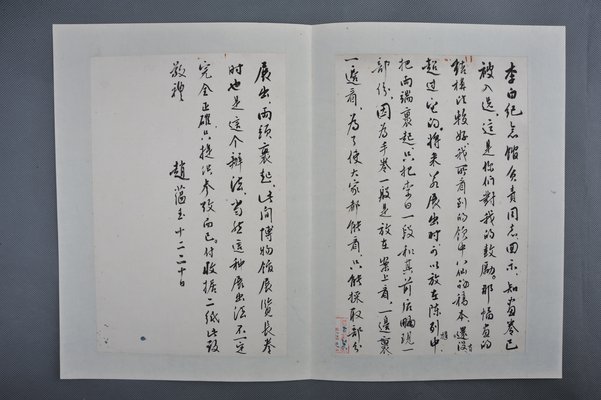 李白纪念馆负责同志回示，知画卷已
被入选，这是你们对我的鼓励。那幅画的
结构比较好，我所看到的饮中八仙的稿本还没有
超过它的。将来若展出时可以放在陈列柜中
把两端裹起，只把李白一段和其前后
部份，因为手卷一般是放在案上看，一边裹
一边看，为了使大家都能看，只能采取部分
展出，两头裹起，此间博物馆展览长卷
时也是这个办法，当然这种展出法不一定
完全正确，只提供参考而已。付收据二纸 此致
敬礼
趙蕴玉 十二二十日